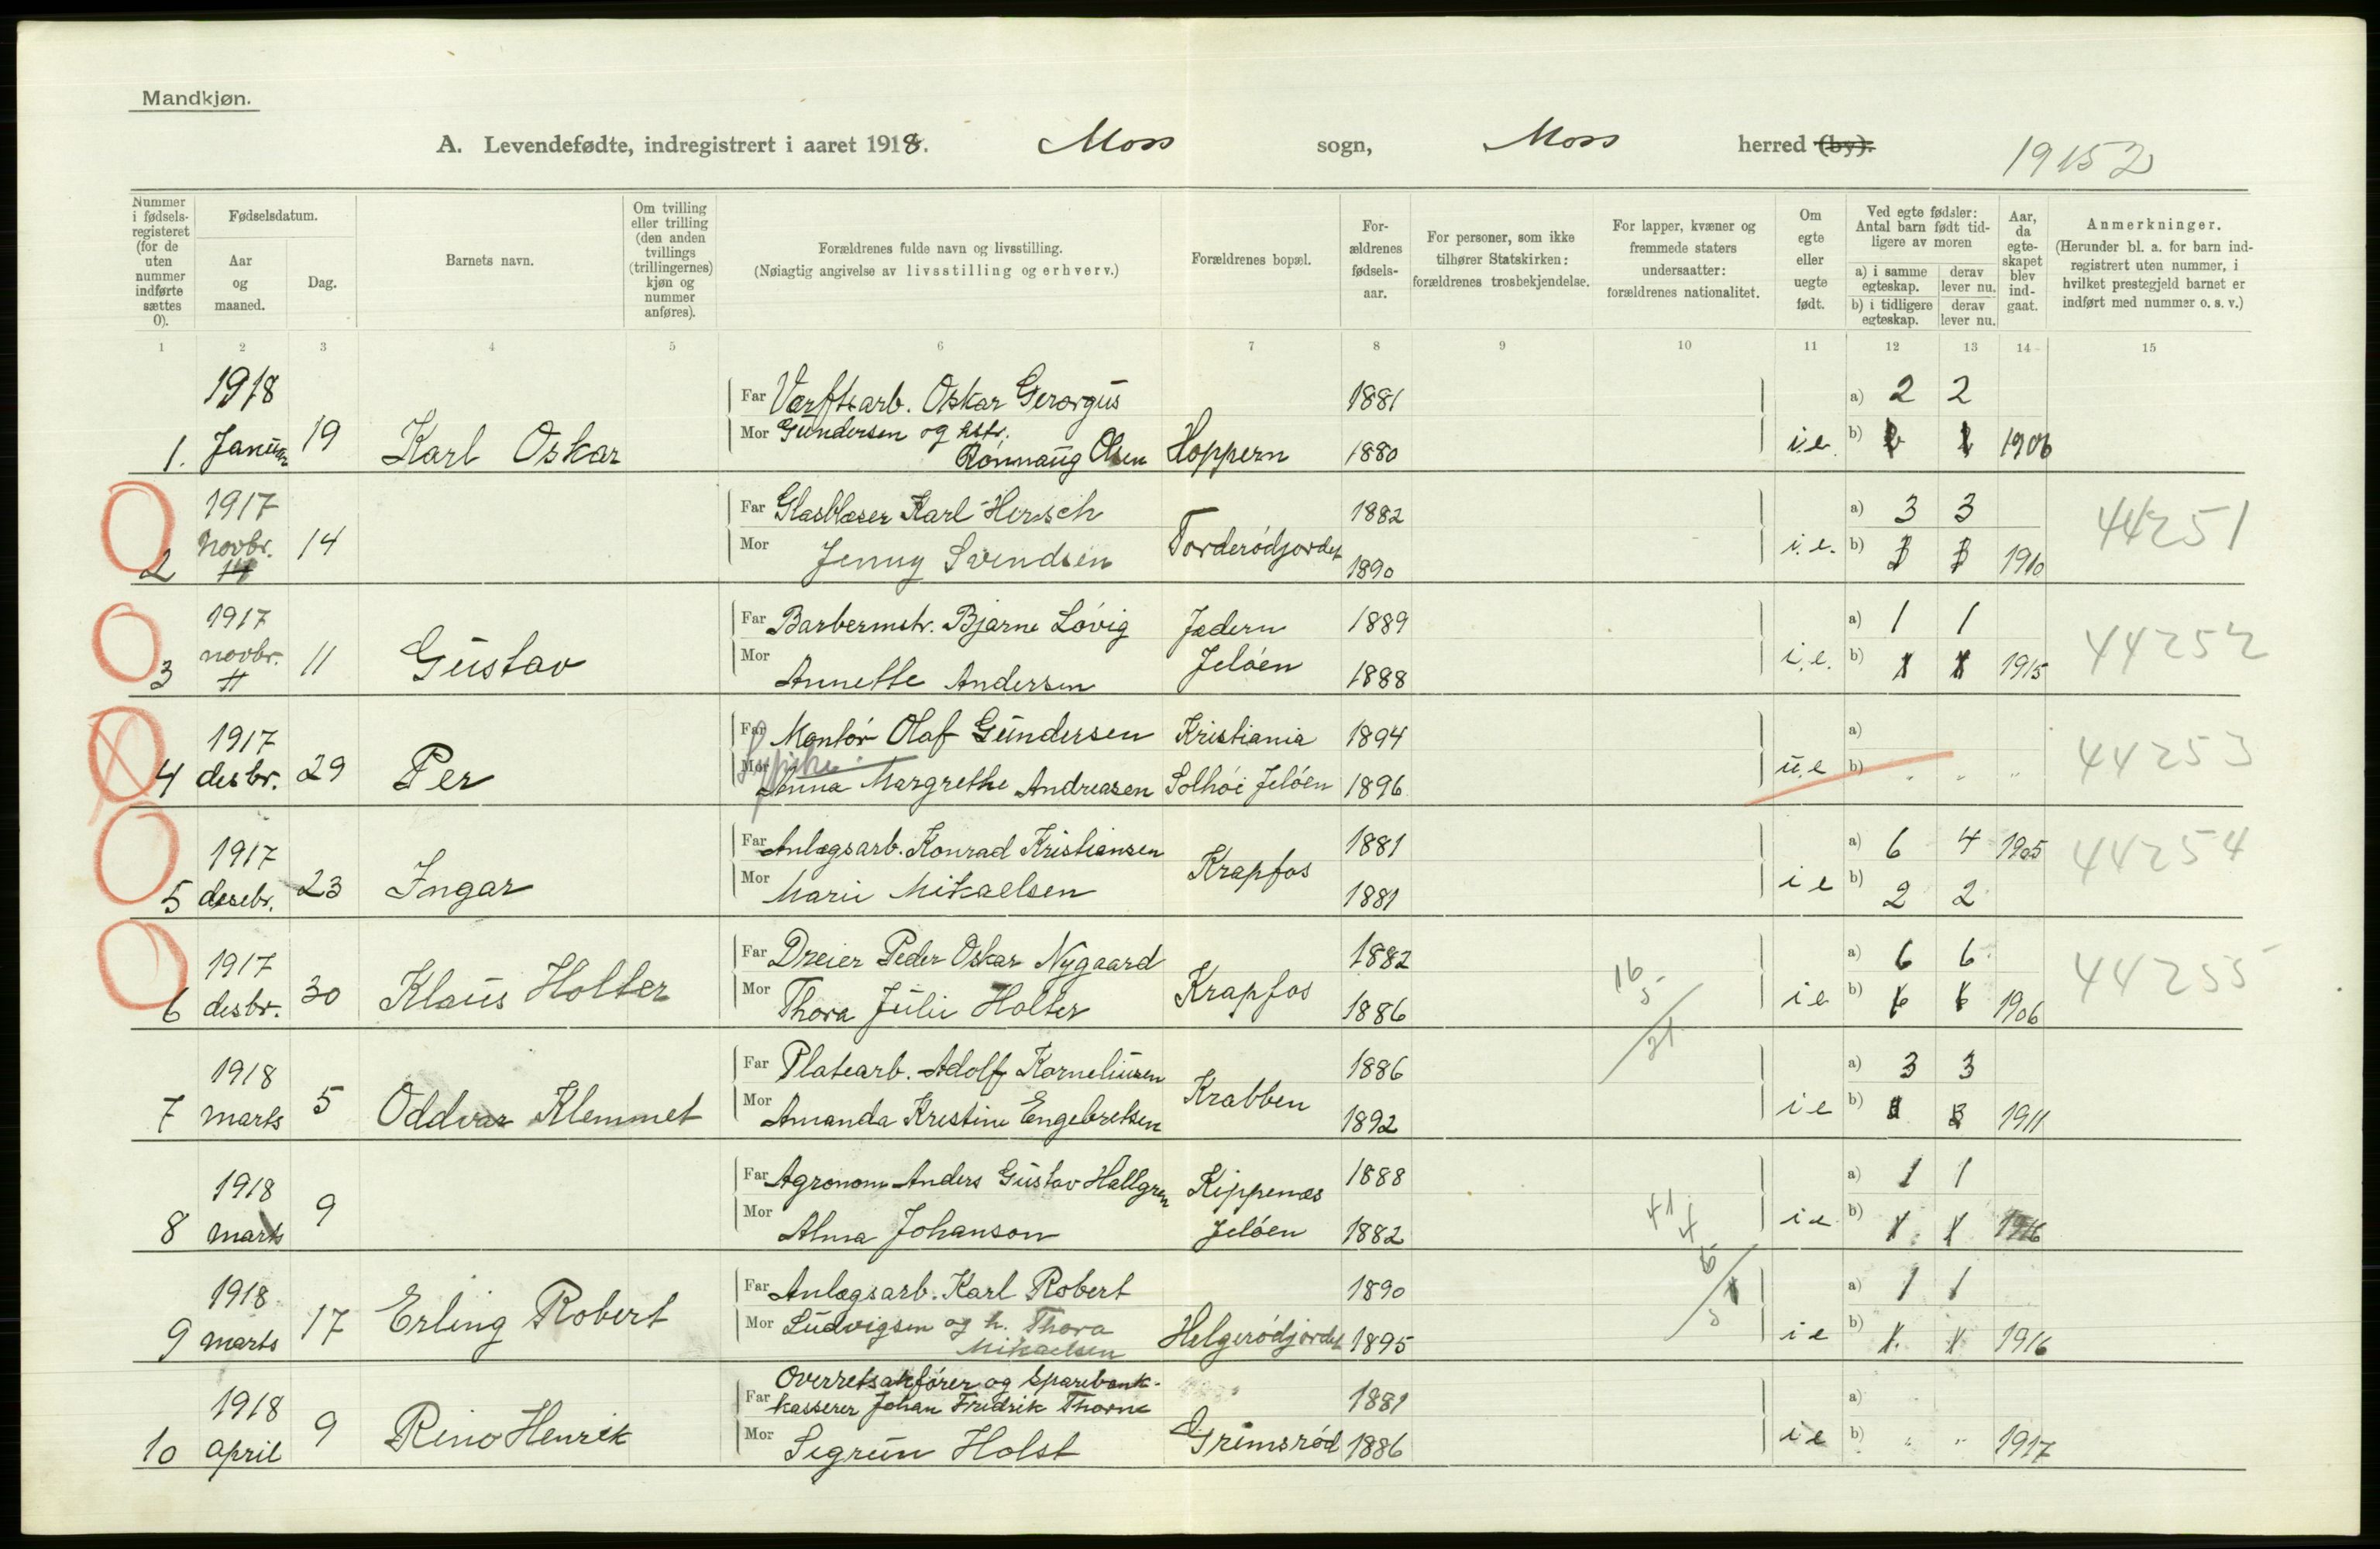 Mandkjøn.
A. Levendefødte, indregistrert i aaret 1918. Moss sogn, Moss herred (by).
19152
Nummer i fødsels-registeret (for de uten nummer indførte sættes 0).
Fødselsdatum.
Aar og maaned.
Dag.
Barnets navn.
Om tvilling eller trilling (den anden tvillings (trillingernes) kjøn og nummer anføres).
Forældrenes fulde navn og livsstilling.
(Nøiagtig angivelse av livsstilling og erhverv.)
Forældrenes bopæl.
For-ældrenes fødsels-aar.
For personer, som ikke tilhører Statskirken: forældrenes trosbekjendelse.
For lapper, kvæner og fremmede staters undersaatter: forældrenes nationalitet.
Om egte eller uegte født.
Ved egte fødsler: Antal barn født tid-ligere av moren
a) i samme egteskap.
derav lever nu.
b) i tidligere egteskap.
derav lever nu.
Aar, da egte-skapet blev ind-gaat.
Anmerkninger.
(Herunder bl. a. for barn ind-registrert uten nummer, i hvilket prestegjeld barnet er indført med nummer o. s. v.)
1 2 3 4 5 6 7 8 9 10 11 12 13 14 15
1918 Far Værftsarb. Oskar Gerorgus 1881 a) 2 2
1. Januar 19 Karl Oskar Mor Gundersen og hstr. Rönnaug Olsen Hoppern 1880 i.e. b) 1906
1917 Far Glasblæser Karl Hersch 1882 a) 3 3 44251
2 novbr. 14 Mor Jenny Svendsen Torderödjordet 1890 i.e. b) 1910
14
1917 Far Barbermstr. Bjarne Lövig Jedern 1889 a) 1 1 44252
3 novbr. 11 Gustav Mor Annette Andersen Jelöen 1888 i.e. b) 1915
11
1917 Far Montör Olaf Gundersen Kristiania 1894 a) 44253
4 desbr. 29 Per Mor Anna Margrethe Andreasen Solhöi Jelöen 1896 u.e b) " " "
1917 Far Anlægsarb. Konrad Kristiansen 1881 a) 6 4 1905 44254
5 desebr. 23 Ingar Mor Marie Mikaelsen Krapfos 1881 i e b) 2 2
1917 Far Dreier Peder Oskar Nygaard 1882 a) 6 6 44255
6 desbr. 30 Klaus Holter Mor Thora Julie Holter Krapfos 1886 16 5 21 i e b) 1906
1918 Far Platearb. Adolf Korneliusen 1886 a) 3 3
7 marts 5 Oddvar Klemmet Mor Amanda Kristine Engebretsen Krabben 1892 i e b) 1911
1918 Far Agronom Anders Gustav Hallgren Kippenæs 1888 a) 1 1
8 marts 9 Mor Alma Johanson Jelöen 1882 i e b) 1916
1918 Far Anlægsarb. Karl Robert 1890 a) 1 1
9 marts 17 Erling Robert Mor Ludvigsen og h. Thora Mikaelsen Helgerödjordet 1895 i e b) 1916
Overretsakförer og Sparebank-
1918 Far kasserer Johan Fredrik Thorne 1881 a)
10 april 9 Reino Henrik Mor Sigrun Holst Grimsröd 1886 i e b) " " 1917